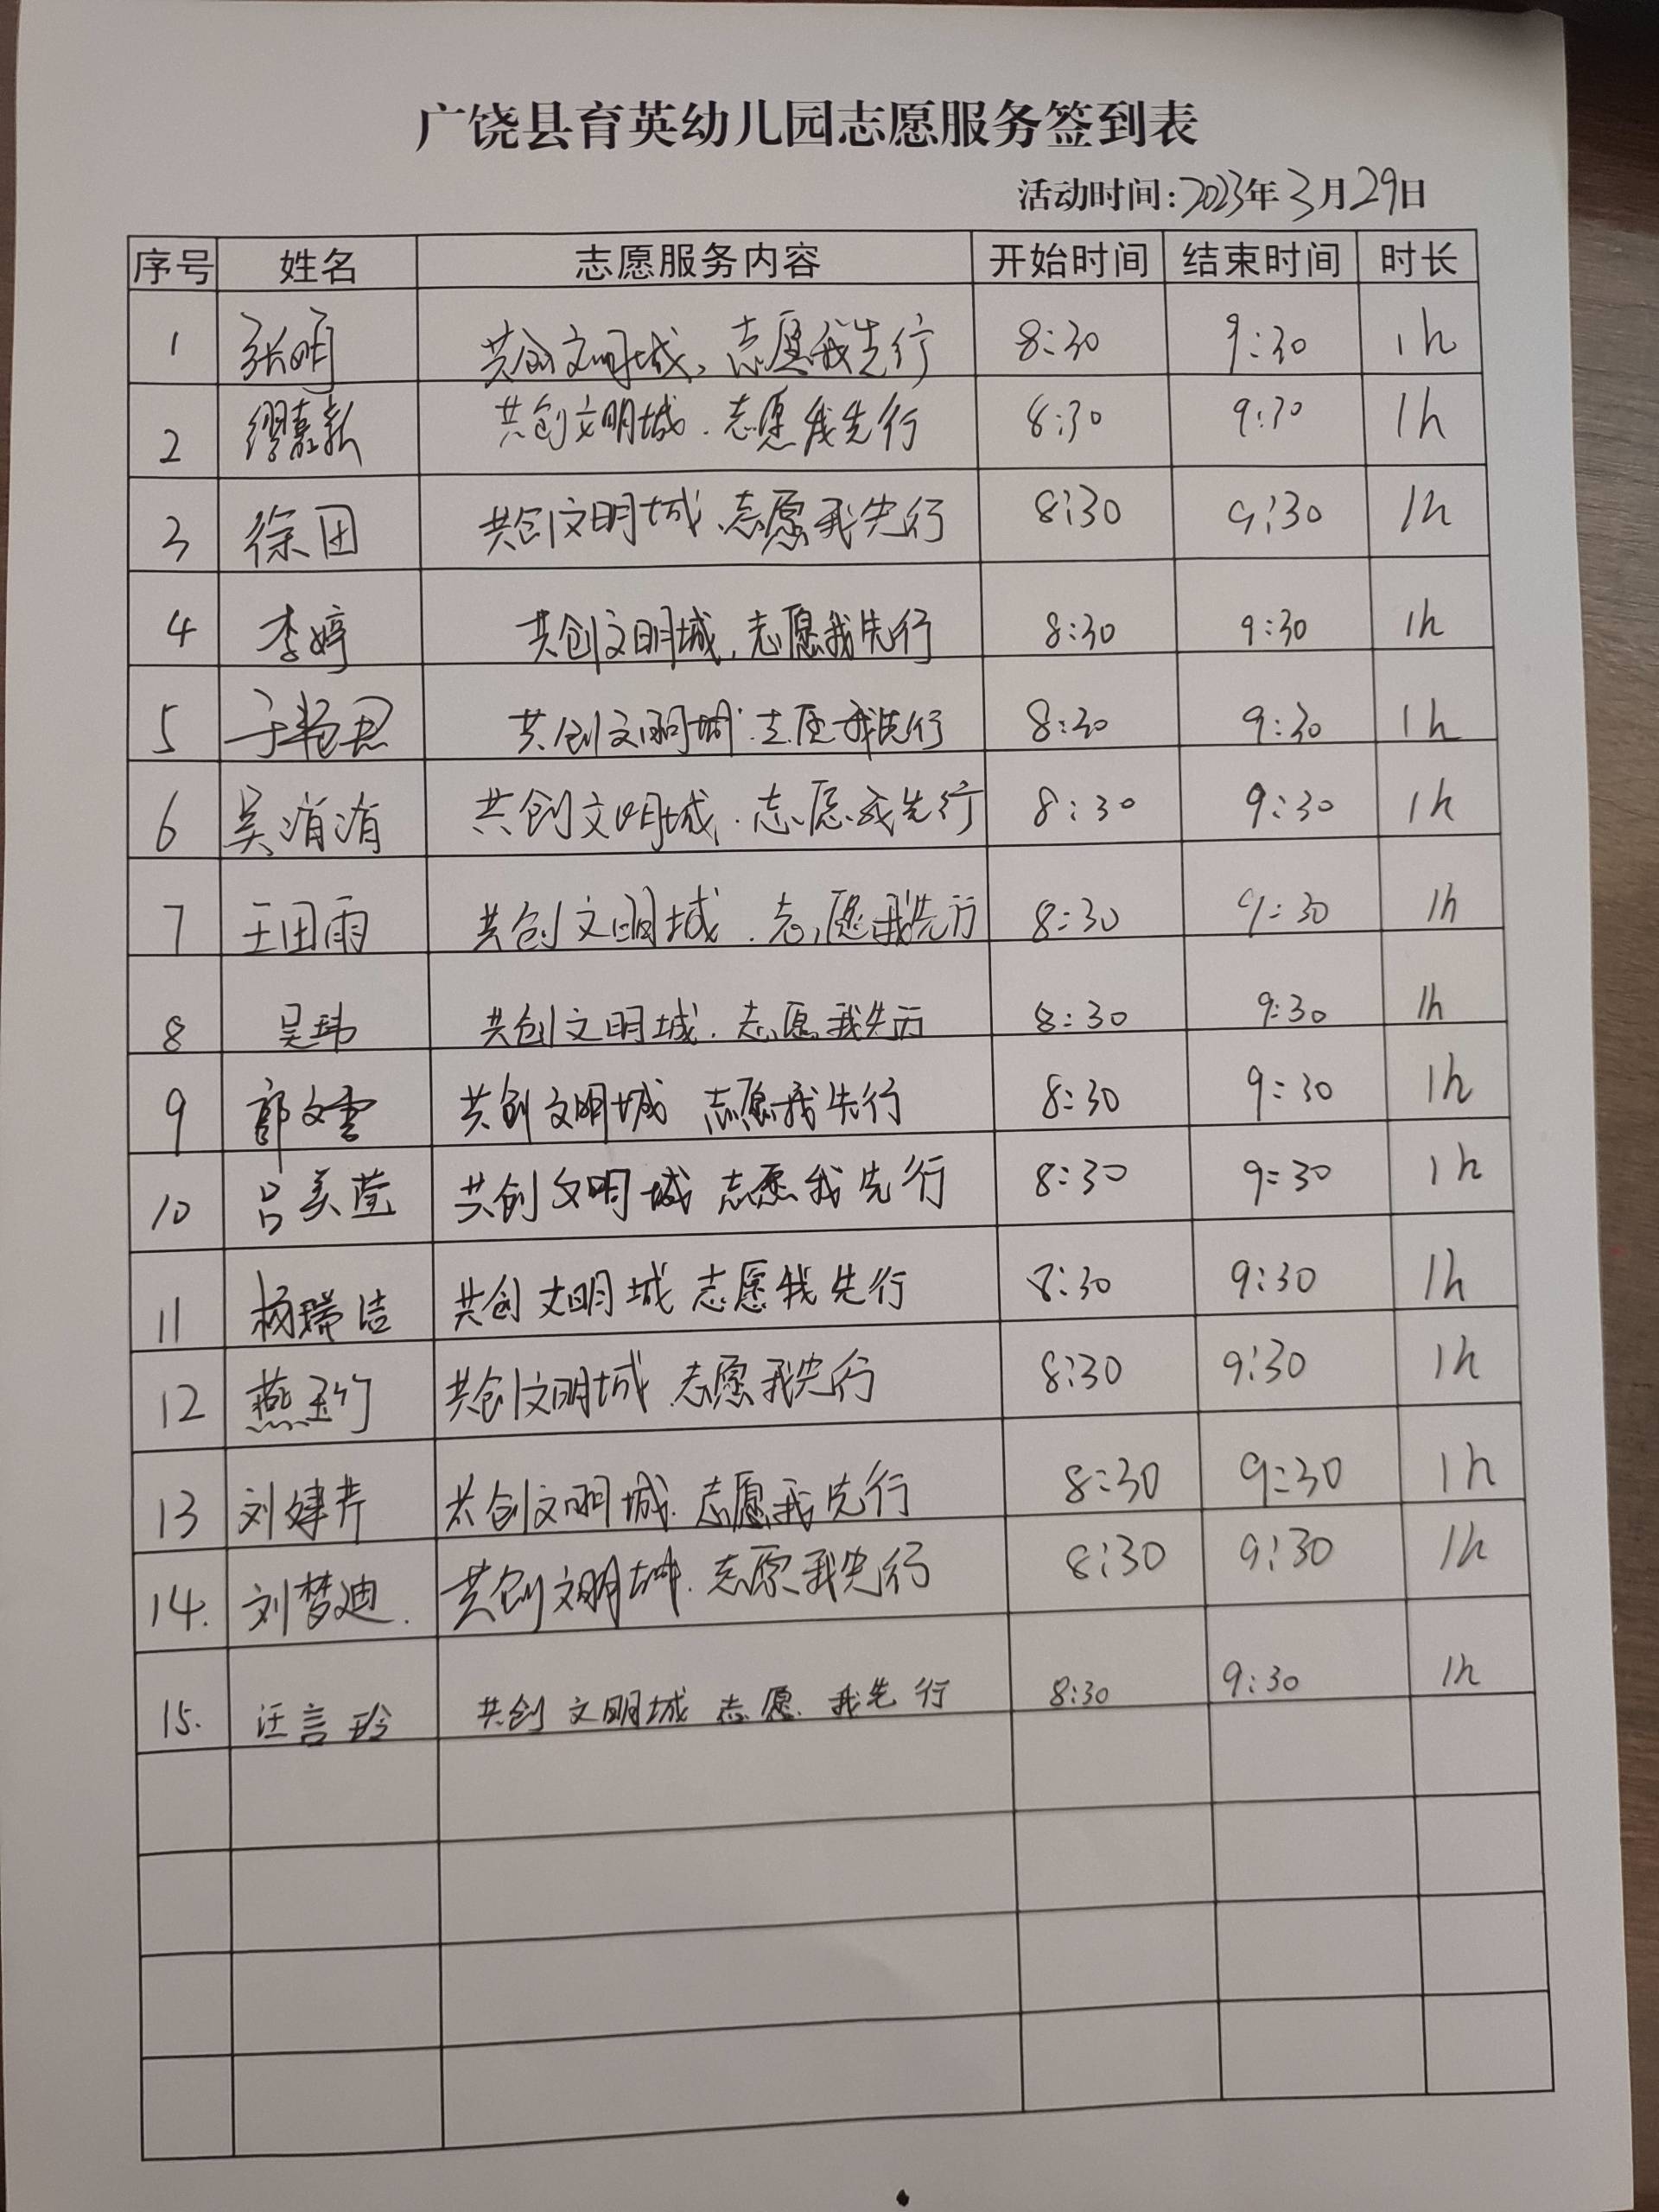 广饶县育英幼儿园志愿服务签到表
活动时间:2023年3月29日
序号 姓名 志愿服务内容 开始时间 结束时间 时长
1 张明 共创文明城、志愿我先行 8:30 9:30 1h
2 缪嘉歆 共创文明城.志愿我先行 8:30 9:30 1h
3 徐团 共创文明城、志愿我先行 8:30 9:30 1h
4 李婷 共创文明城,志愿我先行 8:30 9:30 1h
5 于艳君 共创文明城.志愿我先行 8:30 9:30 1h
6 吴洧洧 共创文明城.志愿我先行 8:30 9:30 1h
7 王田雨 共创文明城.志愿我先行 8:30 9:30 1h
8 吴玮 共创文明城.志愿我先行 8:30 9:30 1h
9 郭文雪 共创文明城 志愿我先行 8:30 9:30 1h
10 吕美莹 共创文明城 志愿我先行 8:30 9:30 1h
11 杨瑞洁 共创文明城 志愿我先行 8:30 9:30 1h
12 燕玉竹 共创文明城 志愿我先行 8:30 9:30 1h
13 刘婕 共创文明城.志愿我先行 8:30 9:30 1h
14. 刘梦迪. 共创文明城.志愿我先行 8:30 9:30 1h
15. 汪言玲 共创文明城 志愿.我先行 8:30 9:30 1h